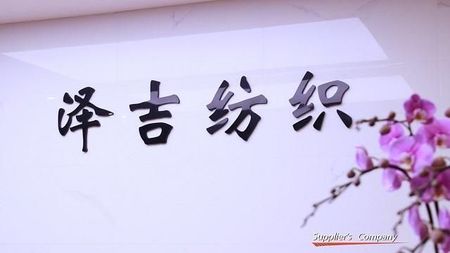 泽吉纺织
Supplier's Company